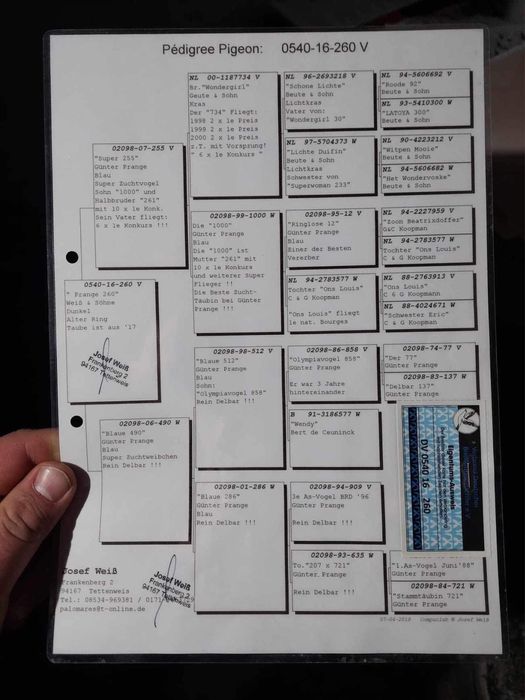 Pédigree Pigeon: 0540-16-260 V
0540-16-260 V
" Prange 260"
Weiß & Söhne
Dunkel
Alter Ring
Taube ist aus '17
Josef Weiß
Frankenberg 2
94167 Tettenweis
02098-07-255 V
"Super 255"
Günter Prange
Blau
Super Zuchtvogel
Sohn "1000" und
Halbbruder "261"
mit 10 x 1e Konk.
Sein Vater fliegt:
6 x 1e Konkurs !!!
02098-06-490 W
"Blaue 490"
Günter Prange
Blau
Super Zuchtweibchen
Rein Delbar !!!
NL 00-1187734 V
Br."Wondergirl"
Geute & Sohn
Kras
Der "734" Fliegt:
1998 2 x 1e Preis
1999 2 x 1e Preis
2000 2 x 1e Preis
z.T. mit Vorsprung!
" 6 x 1e Konkurs "
02098-99-1000 W
Die "1000"
Günter Prange
Blau
Die "1000" ist
Mutter "261" mit
10 x 1e Konkurs
und weiterer Super
Flieger !!
Die Beste Zucht-
Täubin bei Günter
Prange !!!
02098-98-512 V
"Blaue 512"
Günter Prange
Blau
Sohn:
"Olympiavogel 858"
Rein Delbar !!!
02098-01-286 W
"Blaue 286"
Günter Prange
Blau
Rein Delbar !!!
NL 96-2693218 V
"Schone Lichte"
Beute & Sohn
Lichtkras
Vater von:
"Wondergirl 30"
NL 97-5704373 W
"Lichte Duifin"
Beute & Sohn
Lichtkras
Schwester von
"Superwoman 233"
02098-95-12 V
"Ringlose 12"
Günter Prange
Blau
Einer der Besten
Vererber
NL 94-2783577 W
Tochter "Ons Louis"
C & G Koopman
"Ons Louis" fliegt
1e nat. Bourges
02098-86-858 V
"Olympiavogel 858"
Günter Prange
Er war 3 Jahre
hintereinander
B 91-3186577 W
"Wendy"
Bert de Ceuninck
02098-94-909 V
3e As-Vogel BRD '96
Günter Prange
Rein Delbar !!!
02098-93-635 W
To."207 x 721"
Günter Prange
Rein Delbar !!!
NL 94-5606692 V
"Roode 92"
Beute & Sohn
NL 93-5410300 W
"LATOYA 300"
Beute & Sohn
NL 90-4223212 V
"Witpen Mooie"
Beute & Sohn
NL 94-5606682 W
"Het Wondervoske"
Beute & Sohn
NL 94-2227959 V
"Zoon Beatrixdoffer"
G&C Koopman
NL 94-2783577 W
Tochter "Ons Louis"
C & G Koopman
NL 88-2763913 V
"Ons Louis"
C & G Koopmann
NL 88-4024671 W
"Schwester Eric"
C & G Koopman
02098-74-77 V
"Der 77"
Günter Prange
02098-83-137 W
"Delbar 137"
Günter Prange
Eigentums-Ausweis
DV 0540 16 260
"1.As-Vogel Juni'88"
Günter Prange
02098-84-721 W
"Stammtäubin 721"
Günter Prange
Josef Weiß
Frankenberg 2
94167 Tettenweis
Tel.: 08534-969381 / 0171
palomares@t-online.de
Josef Weiß
Frankenberg 2
94167 Tettenweis
07-04-2018 Compuclub © Josef Weiß